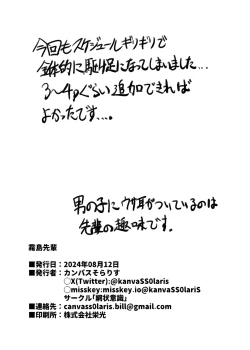 今回もスケジュールギリギリで
全体的に駆け足になってしまいました...
3～4pぐらい追加できれば
よかったです...。
男の子にウサ耳がついているのは
先輩の趣味です。
霧島先輩
■発行日：2024年08月12日
■発行者：カンバスそらりす
○X(Twitter):@kanvaSS0laris
○misskey:misskey.io@kanvaSS0lariS
サークル「網状意識」
■連絡先：canvass0laris.bill@gmail.com
■印刷所：株式会社栄光